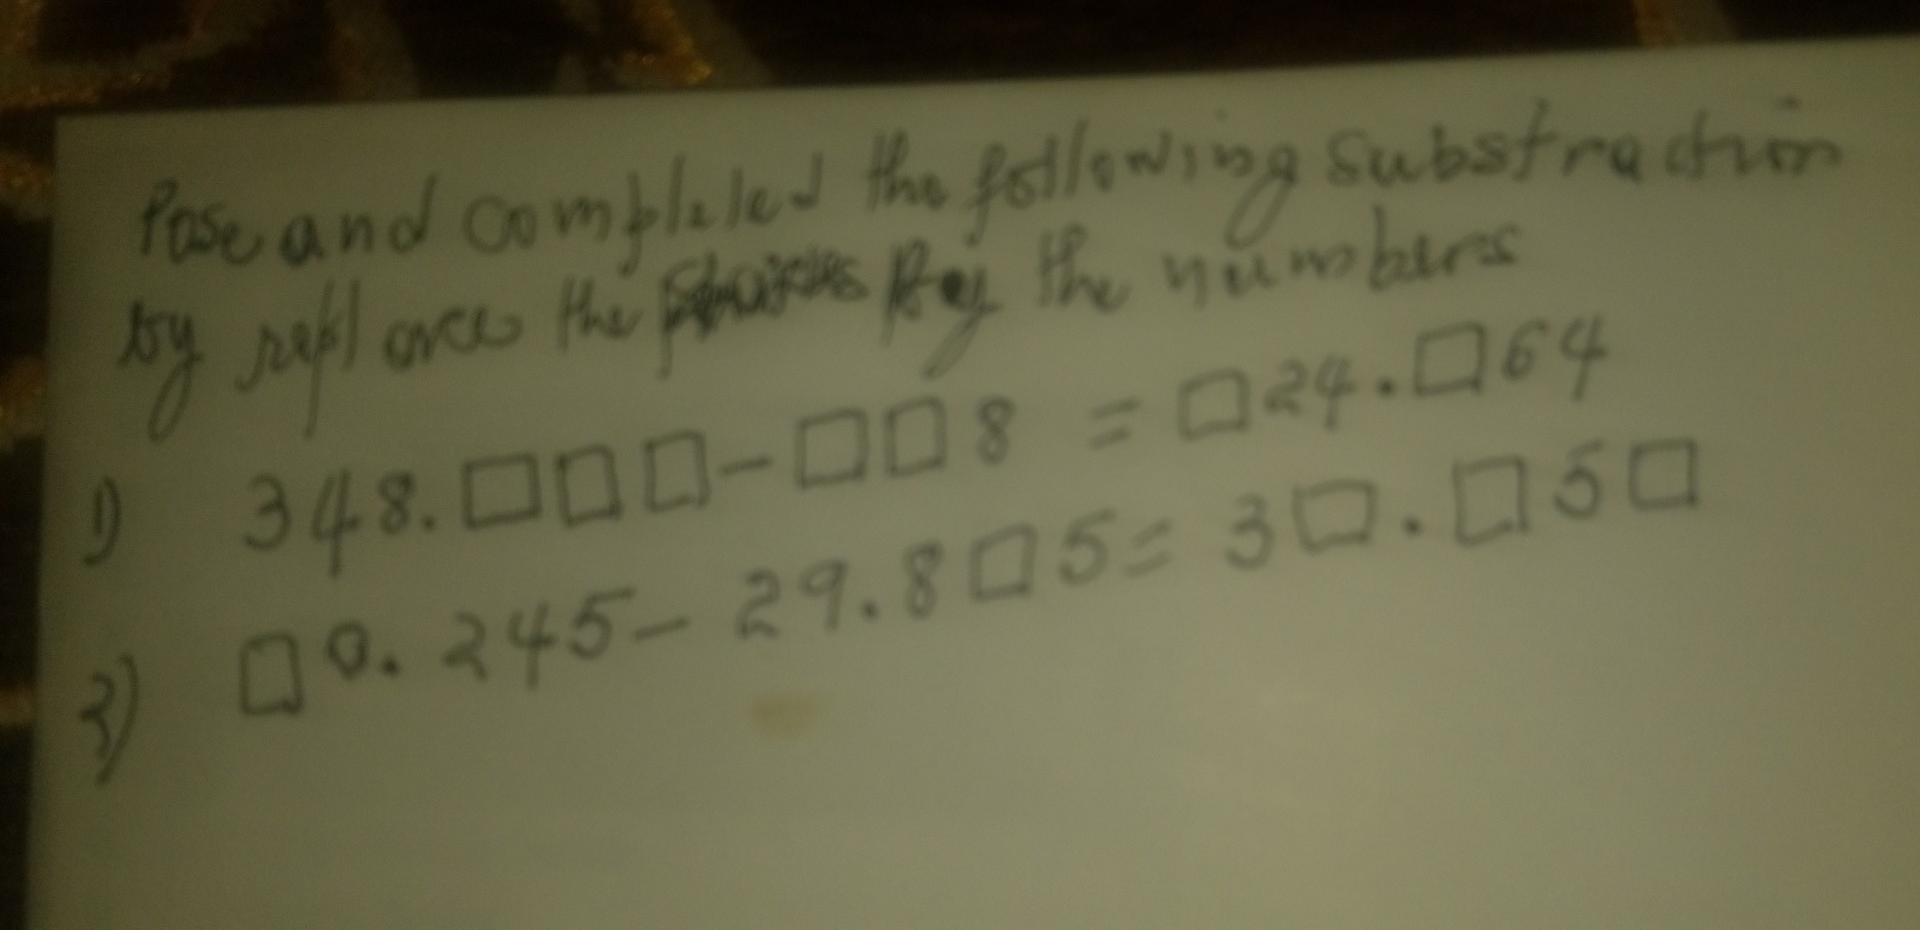 Pose and completed the following substraction
by replace the by the numbers
1) 348.□□□-□□8 = □24.□64
2) □0.245- 29.8□5= 3□.□5□